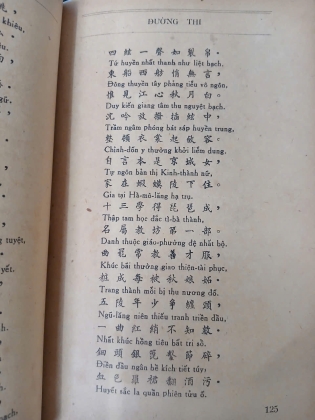 ĐƯỜNG THI
四絃一聲如裂帛。
Tứ huyền nhất thanh như liệt bạch.
東船西舫悄無言，
Đông thuyền tây phảng tiễu vô ngôn.
唯見江心秋月白。
Duy kiến giang tâm thu nguyệt bạch.
沉吟放撥插絃中，
Trầm ngâm phóng bát sáp huyền trung,
整頓衣裳起斂容。
Chỉnh-đốn y thường khởi liễm dung.
自言本是京城女，
Tự ngôn bản thị Kinh-thành nữ,
家在蝦蟆陵下住。
Gia tại Hà-mô-lăng hạ trụ.
十三學得琵琶成，
Thập tam học đắc tì-bà thành,
名屬教坊第一部。
Danh thuộc giáo-phường đệ nhất bộ.
曲罷常教善才服，
Khúc bãi thường giao thiện-tài phục,
粧成每被秋娘妬。
Trang thành mỗi bị thu nương đố.
五陵年少爭纏頭，
Ngũ-lăng niên thiếu tranh triền đầu,
一曲紅綃不知數。
Nhất khúc hồng tiêu bất tri số.
鈿頭銀篦擊節碎，
Điền đầu ngân bề kích tiết tụy;
血色羅裙翻酒污。
Huyết sắc la quần phiên tửu ố.
125
khiêu,
nữ.
tuyệt,